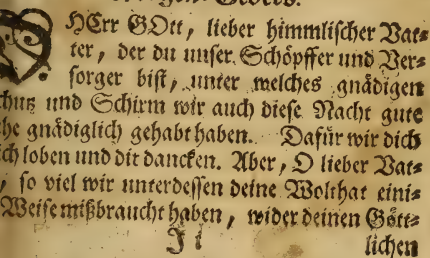 HErr GOtt, lieber himmlischer Vat=
ter, der du unser Schöpffer und Ver=
sorger bist, unter welches gnädigen
und Schirm wir auch diese Nacht gute
gnädiglich gehabt haben. Dafür wir dich
loben und dir dancken. Aber, O lieber Vat=
, so viel wir unterdessen deine Wolthat eini=
Weise mißbraucht haben, wider deinen Gött=
lichen